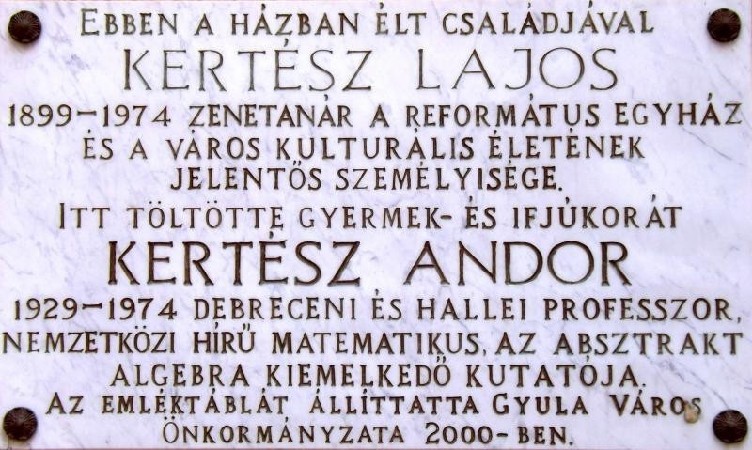 EBBEN A HÁZBAN ÉLT CSALÁDJÁVAL
KERTÉSZ LAJOS
1899–1974 ZENETANÁR A REFORMÁTUS EGYHÁZ
ÉS A VÁROS KULTURÁLIS ÉLETÉNEK
JELENTŐS SZEMÉLYISÉGE.
ITT TÖLTÖTTE GYERMEK- ÉS IFJÚKORÁT
KERTÉSZ ANDOR
1929–1974 DEBRECENI ÉS HALLEI PROFESSZOR,
NEMZETKÖZI HÍRŰ MATEMATIKUS, AZ ABSZTRAKT
ALGEBRA KIEMELKEDŐ KUTATÓJA.
AZ EMLÉKTÁBLÁT ÁLLÍTTATTA GYULA VÁROS
ÖNKORMÁNYZATA 2000-BEN.